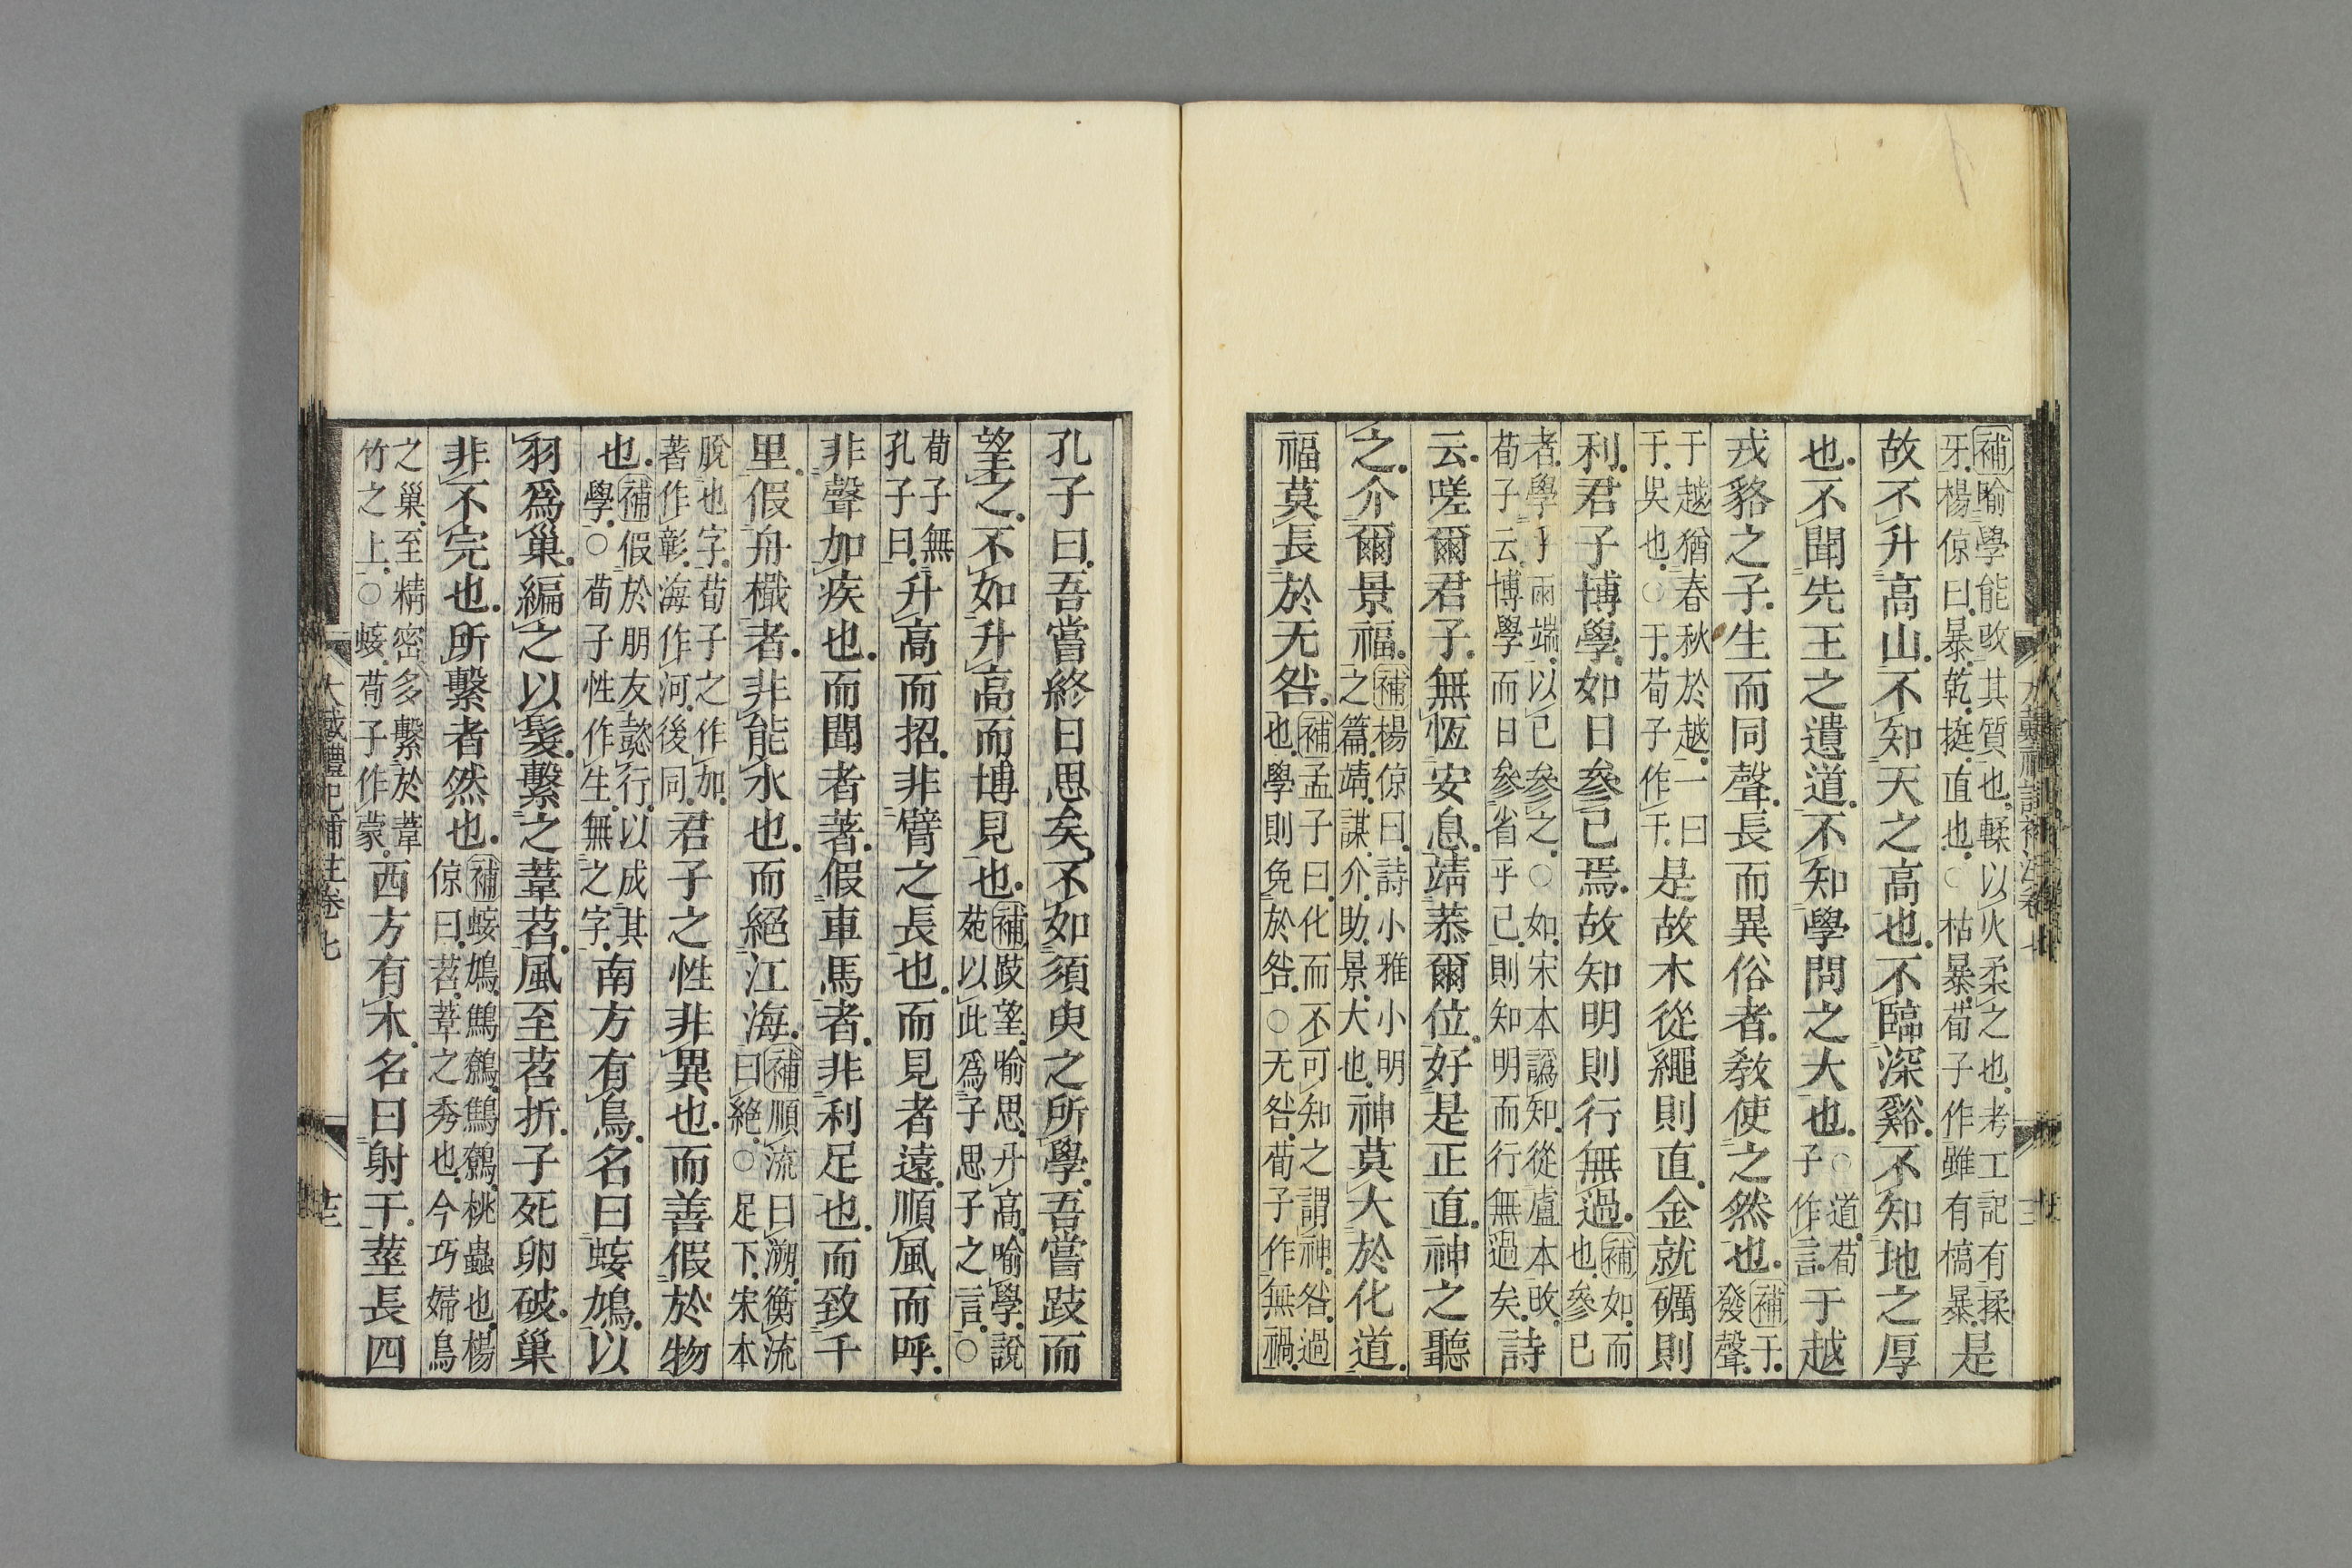 補喻學能攺其質也輮以火柔之也考工記有揉
牙楊倞曰暴乾挺直也○枯暴荀子作雖有槁暴是
故不升高山不知天之高也不臨深谿不知地之厚
也不聞先王之遺道不知學問之大也○道荀子作言于越
戎貉之子生而同聲長而異俗者敎使之然也補于發聲
于越猶春秋於越一曰于吳也○于荀子作干是故木從繩則直金就礪則
利君子博學如日參己焉故知明則行無過補如而也參己
者學乎兩端以己參之○如宋本譌知從盧本攺
荀子云博學而日參省乎己則知明而行無過矣詩
云嗟爾君子無恆安息靖恭爾位好是正直神之聽
之介爾景福補楊倞曰詩小雅小明之篇靖謀介助景大也神莫大於化道
福莫長於无咎補孟子曰化而不可知之謂神咎過也學則免於咎○无咎荀子作無禍
孔子曰吾嘗終日思矣不如須臾之所學吾嘗跂而
望之不如升高而博見也補跂望喻思升高喻學說苑以此爲子思子之言○
荀子無孔子曰升高而招非臂之長也而見者遠順風而呼
非聲加疾也而聞者著假車馬者非利足也而致千
里假舟檝者非能水也而絕江海補順流曰溯衡流曰絕○足下宋本
脫也字荀子之作加著作彰海作河後同君子之性非異也而善假於物
也補假於朋友懿行以成其學○荀子性作生無之字南方有鳥名曰䗀鳩以
羽爲巢編之以髮繫之葦苕風至苕折子死卵破巢
非不完也所繫者然也補䗀鳩鷦鷯鷦鷯桃蟲也楊倞曰苕葦之秀也今巧婦鳥
之巢至精密多繫於葦竹之上○䗀荀子作蒙西方有木名曰射干莖長四
大戴禮記補注卷七